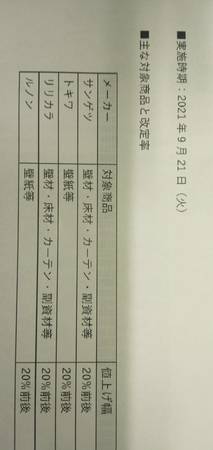 ■実施時期：2021年9月21日（火）
■主な対象商品と改定率
メーカー 対象商品 値上げ幅
サンゲツ 壁材・床材・カーテン・副資材等 20%前後
トキワ 壁紙等 20%前後
リリカラ 壁材・床材・カーテン・副資材等 20%前後
ルノン 壁紙等 20%前後